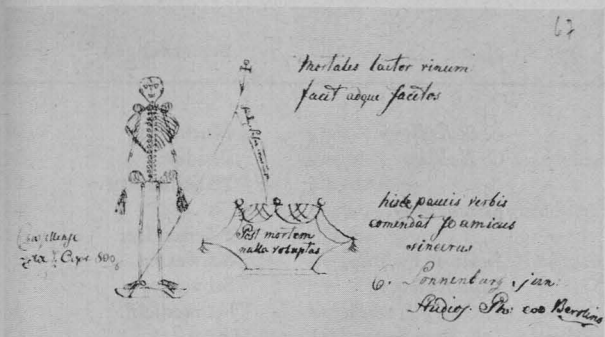 67
Mortales laetor vinum
facit adque facetos
Post mortem
nulla voluptas
hisce paucis verbis
comendat se amicus
sincerus
C. Sonnenburg, jun:
Studios. Berolino